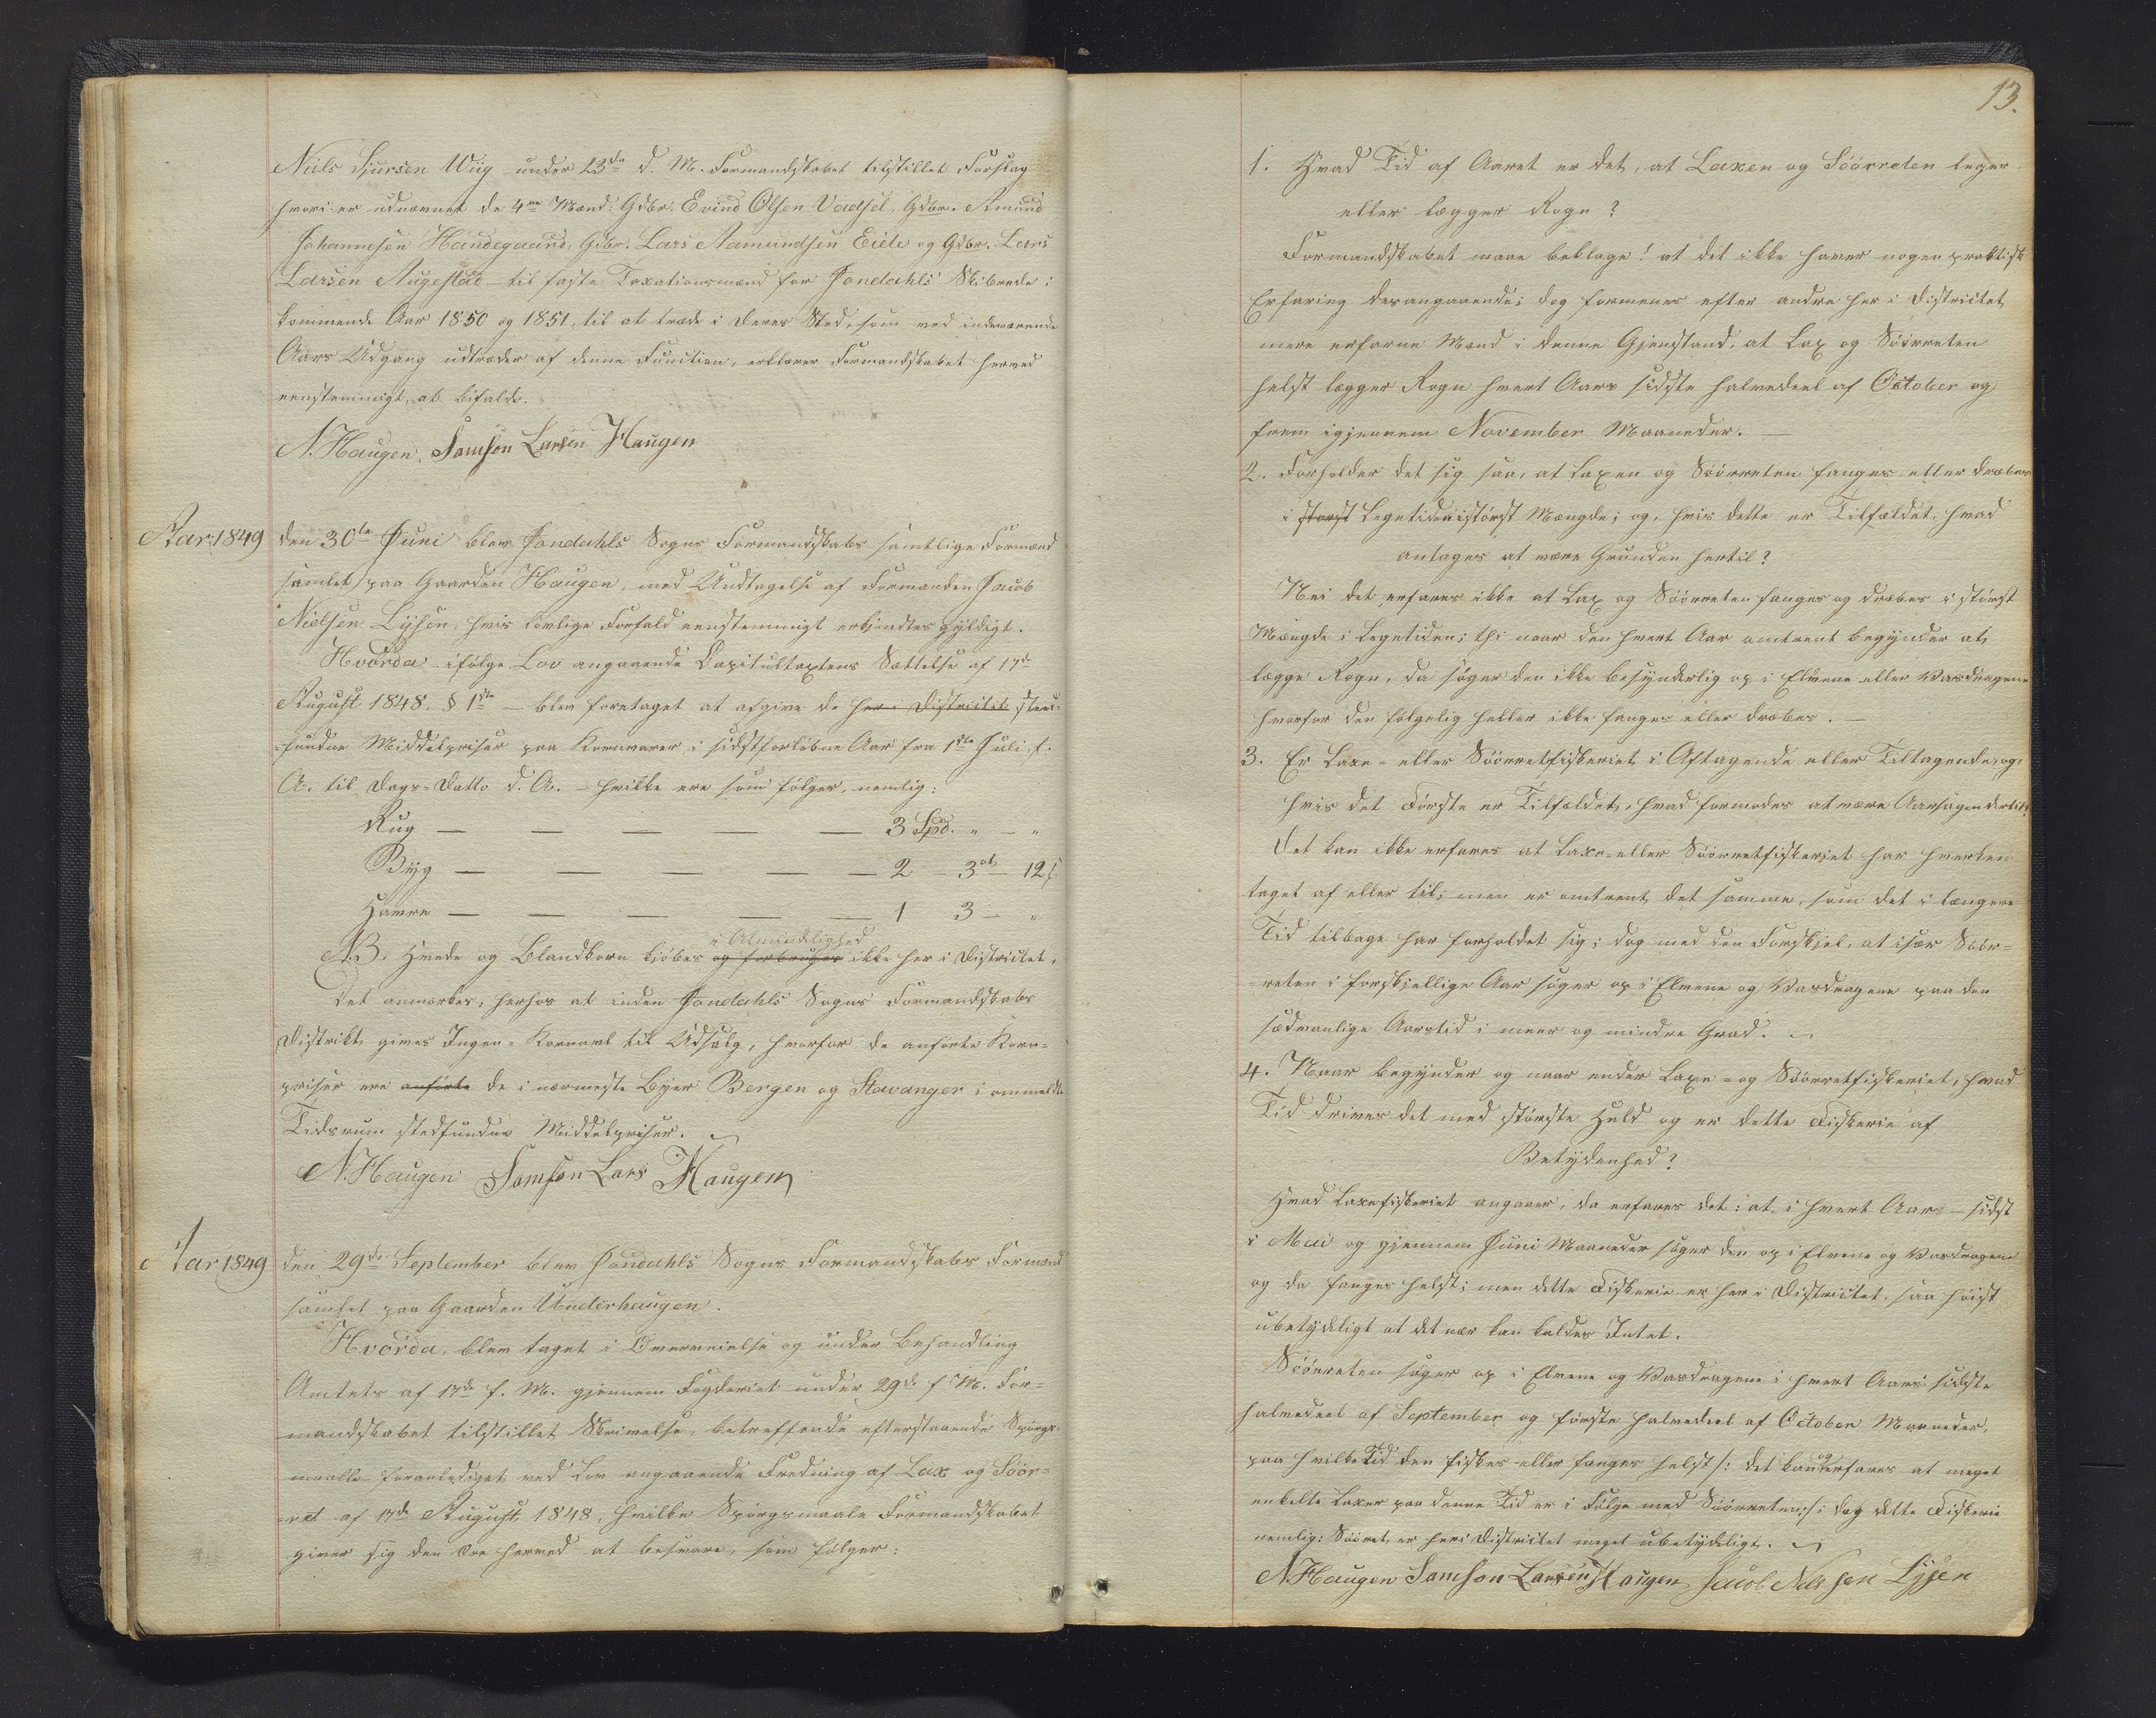 Niels Sjursen Wiig under 23de d. M. Formandskabet tilstillet Forslag
hvori er udnævnet de 4re Mænd: Gdbr. Evind Olsen Vadsel, Gdbr. Amund
Johannesen Handegaard, Gdbr. Lars Aamundsen Eide og Gdbr. Lars
Larsen Augestad til faste Taxationsmænd for Jondahls Skibrede i
kommende Aar 1850 og 1851, til at træde i deres Sted, som ved indeværende
Aars Udgang udtræder af denne Function, erklærer Formandskabet herved
eenstemmigt, at bifalde.
N. Haugen. Samson Larsen Haugen
Aar 1849 den 30te Juni blev Jondahls Sogns Formandskabs samtlige Formænd
samlet paa Gaarden Haugen, med Undtagelse af Formanden Jacob
Nielsen Lysen, hvis lovlige Forfald eenstemmigt erkjendtes gyldigt.
Hvorda ifølge Lov angaaende Capitultaxtens Sættelse af 17de
August 1848. § 1ste – blev foretaget at afgive de her i Districtet sted-
fundne Middelpriser paa Kornvarer i sidstforløbne Aar fra 1ste Juli f.
A. til Dags-Datto d. A. – hvilke ere som følger, nemlig:
Rug — — — — — 3 Spd. " – "
Byg — — — — — 2 – 3 ort – 12 s.
Havre — — — — — 1 3 – "
i Almindelighed
NB. Hvede og Blandkorn kjøbes og forbruges ikke her i Districtet.
Det anmærkes, herhos at inden Jondahls Sogns Formandskabs
Distrikt gives Ingen Kornavl til Udsalg, hvorfor de anførte Korn-
priser ere anførte de i nærmeste Byer Bergen og Stavanger i ommeldte
Tidsrum stedfundne Middelpriser.
N. Haugen Samson Lars Haugen
Aar 1849 den 29de September blev Jondahls Sogns Formandskabs Formænd
samlet paa Gaarden Underhaugen.
Hvorda, blev taget i Overveielse og under Behandling
Amtets af 17de f. M. gjennem Fogderiet under 29de f. M. For-
mandskabet tilstillet Skrivelse, betreffende efterstaaende Spørgs-
maalle foranlediget ved Lov angaaende Fredning af Lax og Söör-
ret af 17de August 1848, hvilke Spørgsmaale Formandskabet
giver sig den Ære herved at besvare, som følger:
13.
1. Hvad Tid af Aaret er det, at Laxen og Söörreten leger
eller lægger Rogn?
Formandskabet maae beklage! at det ikke haver nogen praktisk
Erfaring desangaaende; dog formenes efter andre her i Districtet
mere erfarne Mænd i denne Gjenstand, at Lax og Söörreten
helst lægger Rogn hvert Aars sidste halvedeel af October og
frem igjennem November Maaneder. —
2. Forholder det sig saa, at Laxen og Söörreten fanges eller dræbes
i størst Legetiden i størst Mængde; og, hvis dette er Tilfældet, hvad
antages at være Grunden hertil?
Nei det erfares ikke at Lax og Söörreten fanges og dræbes i størst
Mængde i Legetiden; thi naar den hvert Aar omtrent begynder at
lægge Rogn, da søger den ikke besynderlig op i Elvene eller Vasdragene
hvorfor den følgelig heller ikke fanges eller dræbes. —
3. Er Laxe- eller Söörretfiskeriet i Aftagende eller Tiltagende, og,
hvis det Første er Tilfældet, hvad formodes at være Aarsagen dertil?
Det kan ikke erfares at Laxe- eller Söörretfiskeriet har hverken
taget af eller til; men er omtrent det samme, som det i længere
Tid tilbage har forholdet sig; dog med den Forskjel, at især Söör-
reten i forskjellige Aar søger op i Elvene og Vasdragene paa den
sædvanlige Aarstid i meer og mindre Grad.
4. Naar begynder og naar ender Laxe- og Söörretfiskeriet, hvad
Tid drives det med største Held og er dette Fiskerie af
Betydenhed?
Hvad Laxefiskeriet angaaer, da erfares det: at i hvert Aars – sidst
i Mai og gjennem Juni Maaneder søger den op i Elvene og Vasdragene
og da fanges helst; men dette Fiskerie er her i Districtet, saa høist
ubetydeligt at det nær kan kaldes Intet.
Söörreten søger op i Elvene og Vasdragene i hvert Aars sidste
halvedeel af September og første halvedeel af October Maaneder,
paa hvilke Tid den fiskes eller fanges helst /: det kan og erfares at meget
enkelte Laxer paa denne Tid er i Følge med Söörreten :/ dog dette Fiskerie
nemlig: Sööret er her i Districtet meget ubetydeligt.
N. Haugen Samson Larsen Haugen Jacob Nielsen Lysen